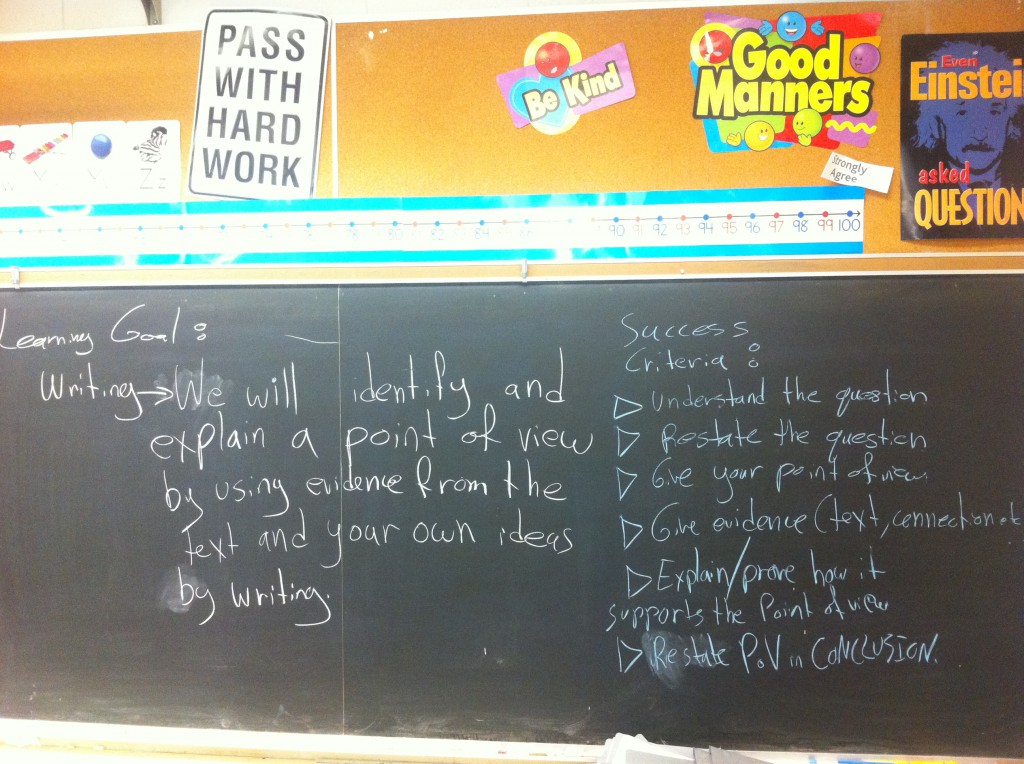 PASS
WITH
HARD
WORK
Be Kind
Good
Manners
Strongly
Agree
Even
Einstei
asked
QUESTION
Zz
80 82 84 86
90 91 92 93 94 95 96 97 98 99 100
Learning Goal:
Writing→We will identify and
explain a point of view
by using evidence from the
text and your own ideas
by writing.
Success
Criteria:
▷ Understand the question
▷ Restate the question
▷ Give your point of view.
▷ Give evidence (text, connection etc
▷ Explain/prove how it
supports the Point of view
▷ Restate PoV in CONCLUSION.